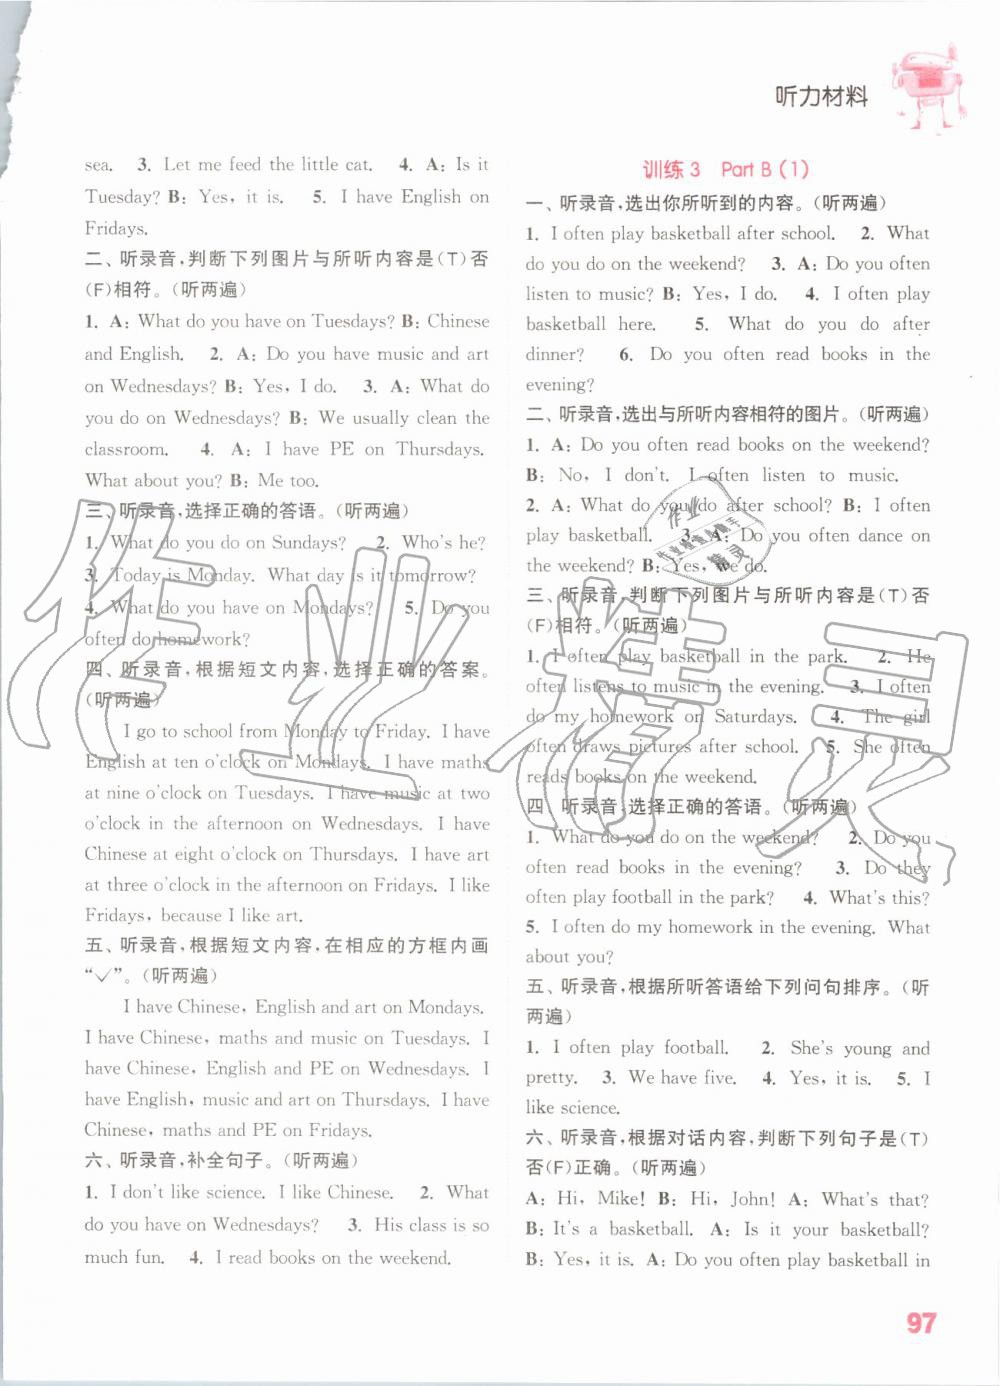 听力材料
sea. 3. Let me feed the little cat. 4. A: Is it
Tuesday? B: Yes, it is. 5. I have English on
Fridays.
二、听录音,判断下列图片与所听内容是(T)否
(F)相符。(听两遍)
1. A: What do you have on Tuesdays? B: Chinese
and English. 2. A: Do you have music and art
on Wednesdays? B: Yes, I do. 3. A: What do
you do on Wednesdays? B: We usually clean the
classroom. 4. A: I have PE on Thursdays.
What about you? B: Me too.
三、听录音,选择正确的答语。(听两遍)
1. What do you do on Sundays? 2. Who's he?
3. Today is Monday. What day is it tomorrow?
4. What do you have on Mondays? 5. Do you
often do homework?
四、听录音,根据短文内容,选择正确的答案。
(听两遍)
I go to school from Monday to Friday. I have
English at ten o'clock on Mondays. I have maths
at nine o'clock on Tuesdays. I have music at two
o'clock in the afternoon on Wednesdays. I have
Chinese at eight o'clock on Thursdays. I have art
at three o'clock in the afternoon on Fridays. I like
Fridays, because I like art.
五、听录音,根据短文内容,在相应的方框内画
“✓”。(听两遍)
I have Chinese, English and art on Mondays.
I have Chinese, maths and music on Tuesdays. I
have Chinese, English and PE on Wednesdays. I
have English, music and art on Thursdays. I have
Chinese, maths and PE on Fridays.
六、听录音,补全句子。(听两遍)
1. I don't like science. I like Chinese. 2. What
do you have on Wednesdays? 3. His class is so
much fun. 4. I read books on the weekend.
训练3 Part B (1)
一、听录音,选出你所听到的内容。(听两遍)
1. I often play basketball after school. 2. What
do you do on the weekend? 3. A: Do you often
listen to music? B: Yes, I do. 4. I often play
basketball here. 5. What do you do after
dinner? 6. Do you often read books in the
evening?
二、听录音,选出与所听内容相符的图片。(听两遍)
1. A: Do you often read books on the weekend?
B: No, I don't. I often listen to music.
2. A: What do you do after school? B: I often
play basketball. 3. A: Do you often dance on
the weekend? B: Yes, we do.
三、听录音,判断下列图片与所听内容是(T)否
(F)相符。(听两遍)
1. I often play basketball in the park. 2. He
often listens to music in the evening. 3. I often
do my homework on Saturdays. 4. The girl
often draws pictures after school. 5. She often
reads books on the weekend.
四、听录音,选择正确的答语。(听两遍)
1. What do you do on the weekend? 2. Do you
often read books in the evening? 3. Do they
often play football in the park? 4. What's this?
5. I often do my homework in the evening. What
about you?
五、听录音,根据所听答语给下列问句排序。(听
两遍)
1. I often play football. 2. She's young and
pretty. 3. We have five. 4. Yes, it is. 5. I
like science.
六、听录音,根据对话内容,判断下列句子是(T)
否(F)正确。(听两遍)
A: Hi, Mike! B: Hi, John! A: What's that?
B: It's a basketball. A: Is it your basketball?
B: Yes, it is. A: Do you often play basketball in
97
作业精灵